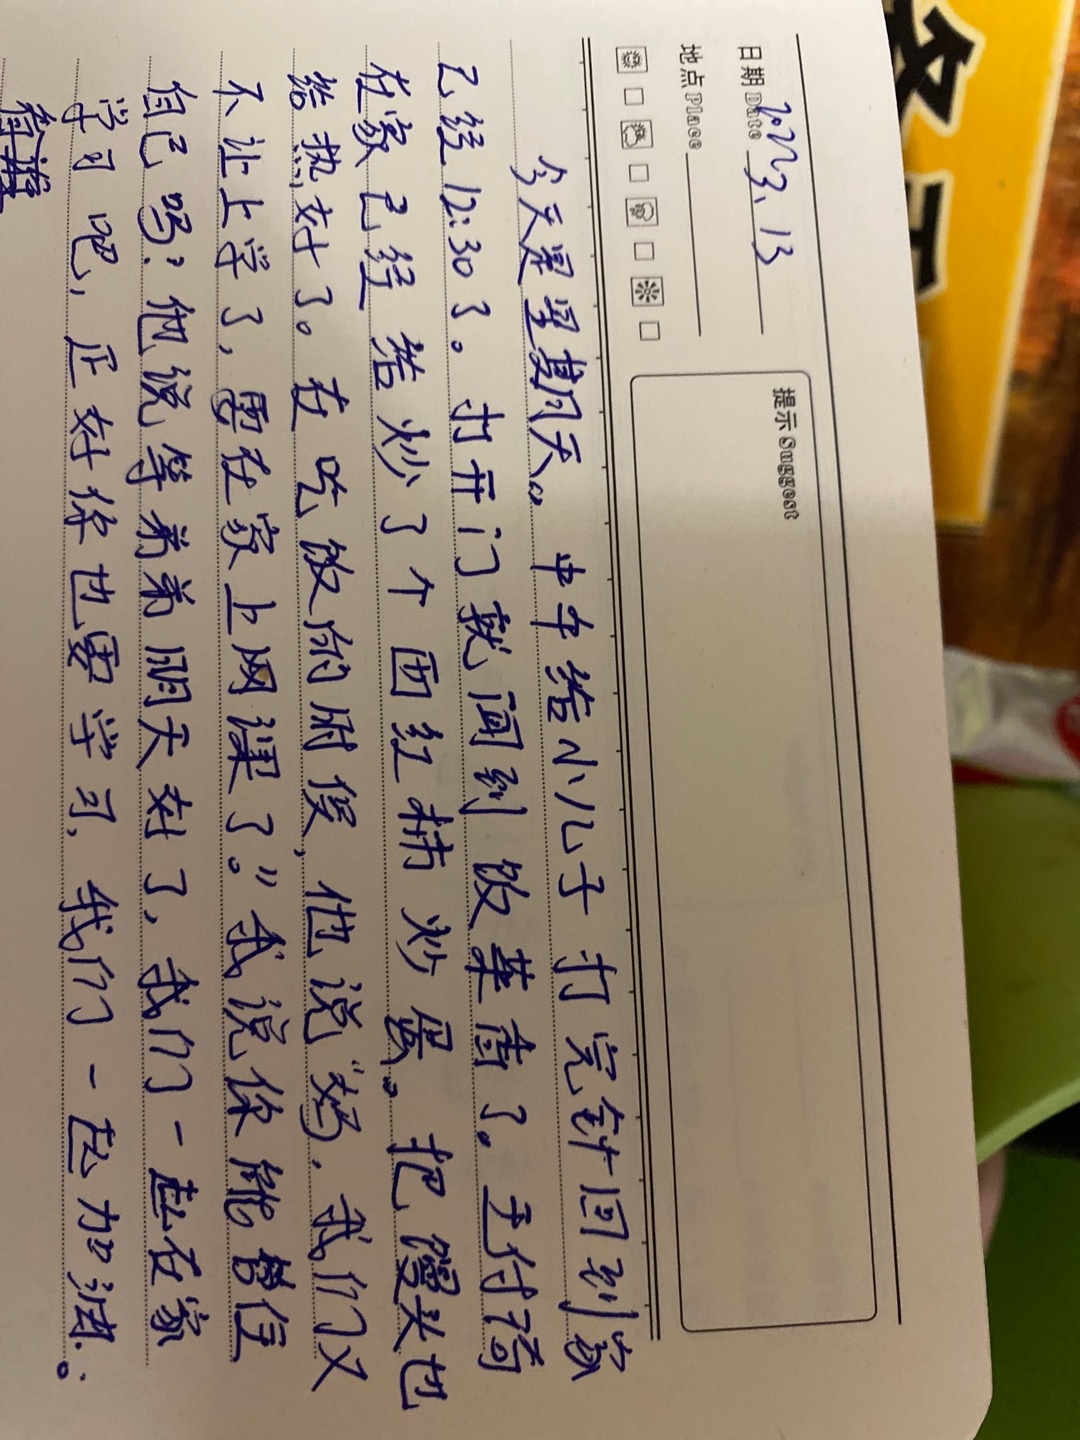 日期 Date 2022.3.13
地点 Place
提示 Suggest
今天是星期天。中午给小儿子打完针回到家
已经12:30了。打开门就闻到饭菜香了。王付荷
在家已经给炒了个西红柿炒蛋。把馒头也
给热好了。在吃饭的时侯，他说“妈，我们又
不让上学了，要在家上网课了。”我说你能管住
自己吗？他说等弟弟明天好了，我们一起在家
学习吧，正好你也要学习，我们一起加油。